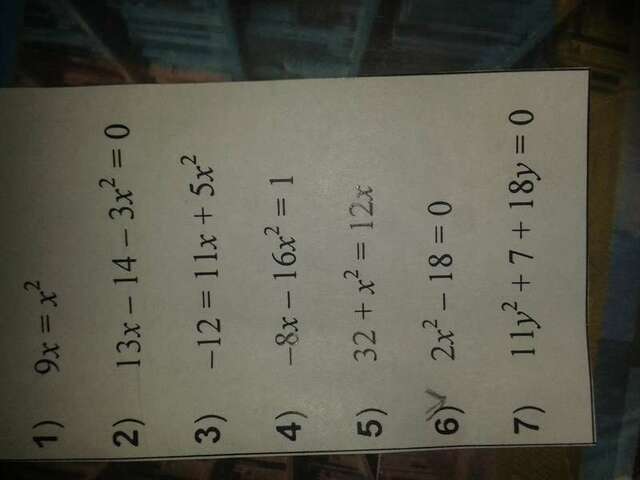 1) 9x = x²
2) 13x − 14 − 3x² = 0
3) −12 = 11x + 5x²
4) −8x − 16x² = 1
5) 32 + x² = 12x
6) 2x² − 18 = 0
7) 11y² + 7 + 18y = 0